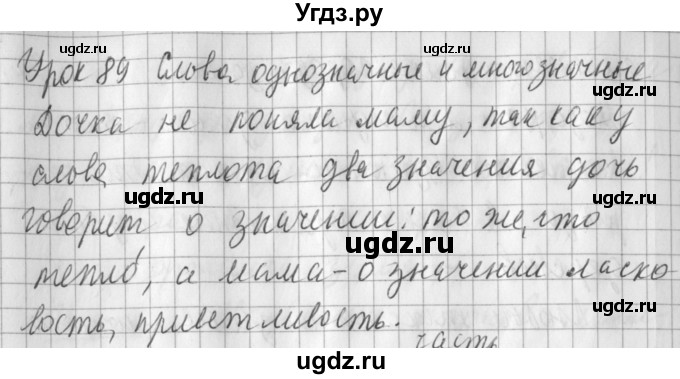 Угдз.ру
Урок 89 Слова однозначные и многозначные
Дочка не поняла маму, так как у
слова теплота два значения дочь
говорит о значении: то же, что
тепло, а мама - о значении ласко-
вость, приветливость.
часть
ugdz.ru
ugdz.ru
ugdz.ru
ugdz.ru
ugdz.ru
ugdz.ru
ugdz.ru
ugdz.ru
ugdz.ru
ugdz.ru
ugdz.ru